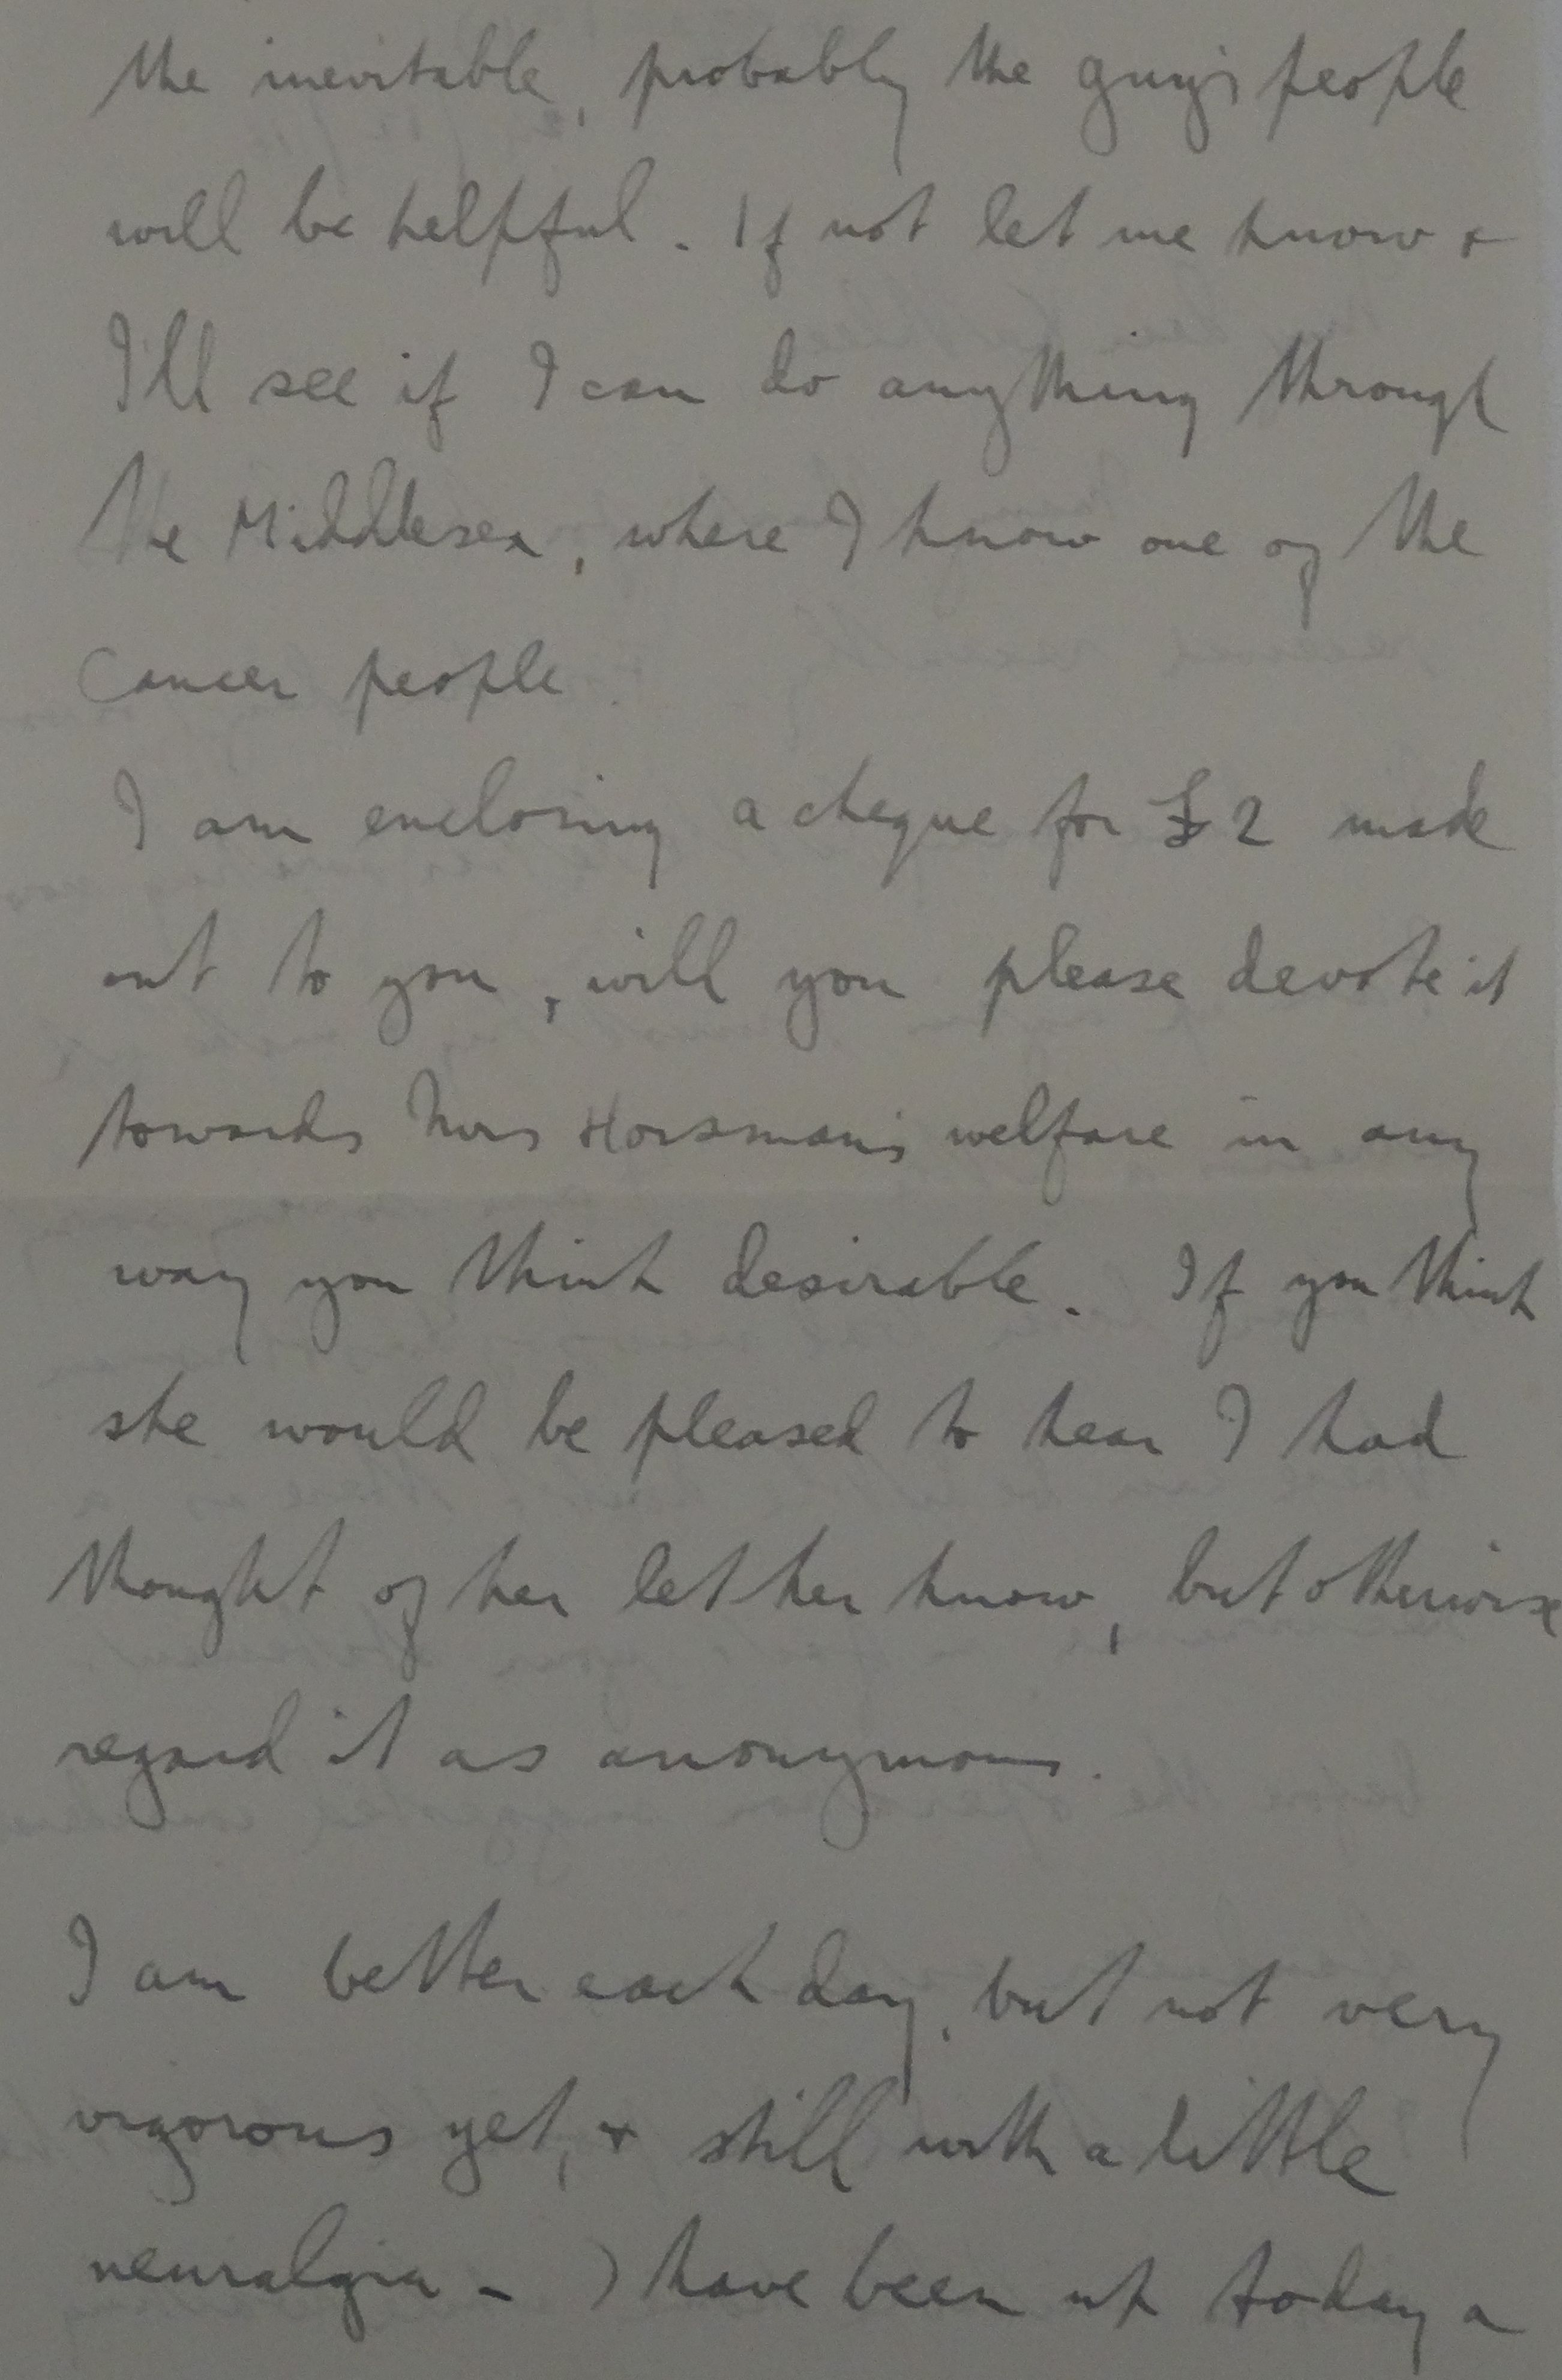 the inevitable, probably the guy's people
will be helpful. If not let me know &
I'll see if I can do anything through
the Middlesex, where I know one of the
Cancer people.
I am enclosing a cheque for £2 made
out to you, will you please devote it
towards Mrs Horsman's welfare in any
way you think desirable. If you think
she would be pleased to hear I had
thought of her let her know, but otherwise
regard it as anonymous.
I am better each day, but not very
vigorous yet, & still with a little
neuralgia - I have been up today a